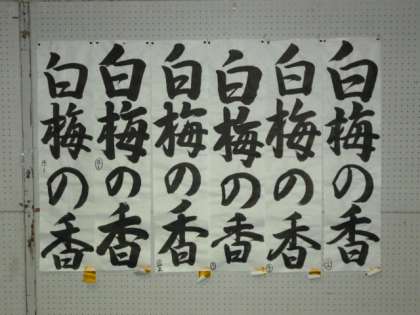 白梅の香
白梅の香
白梅の香
白梅の香
白梅の香
白梅の香